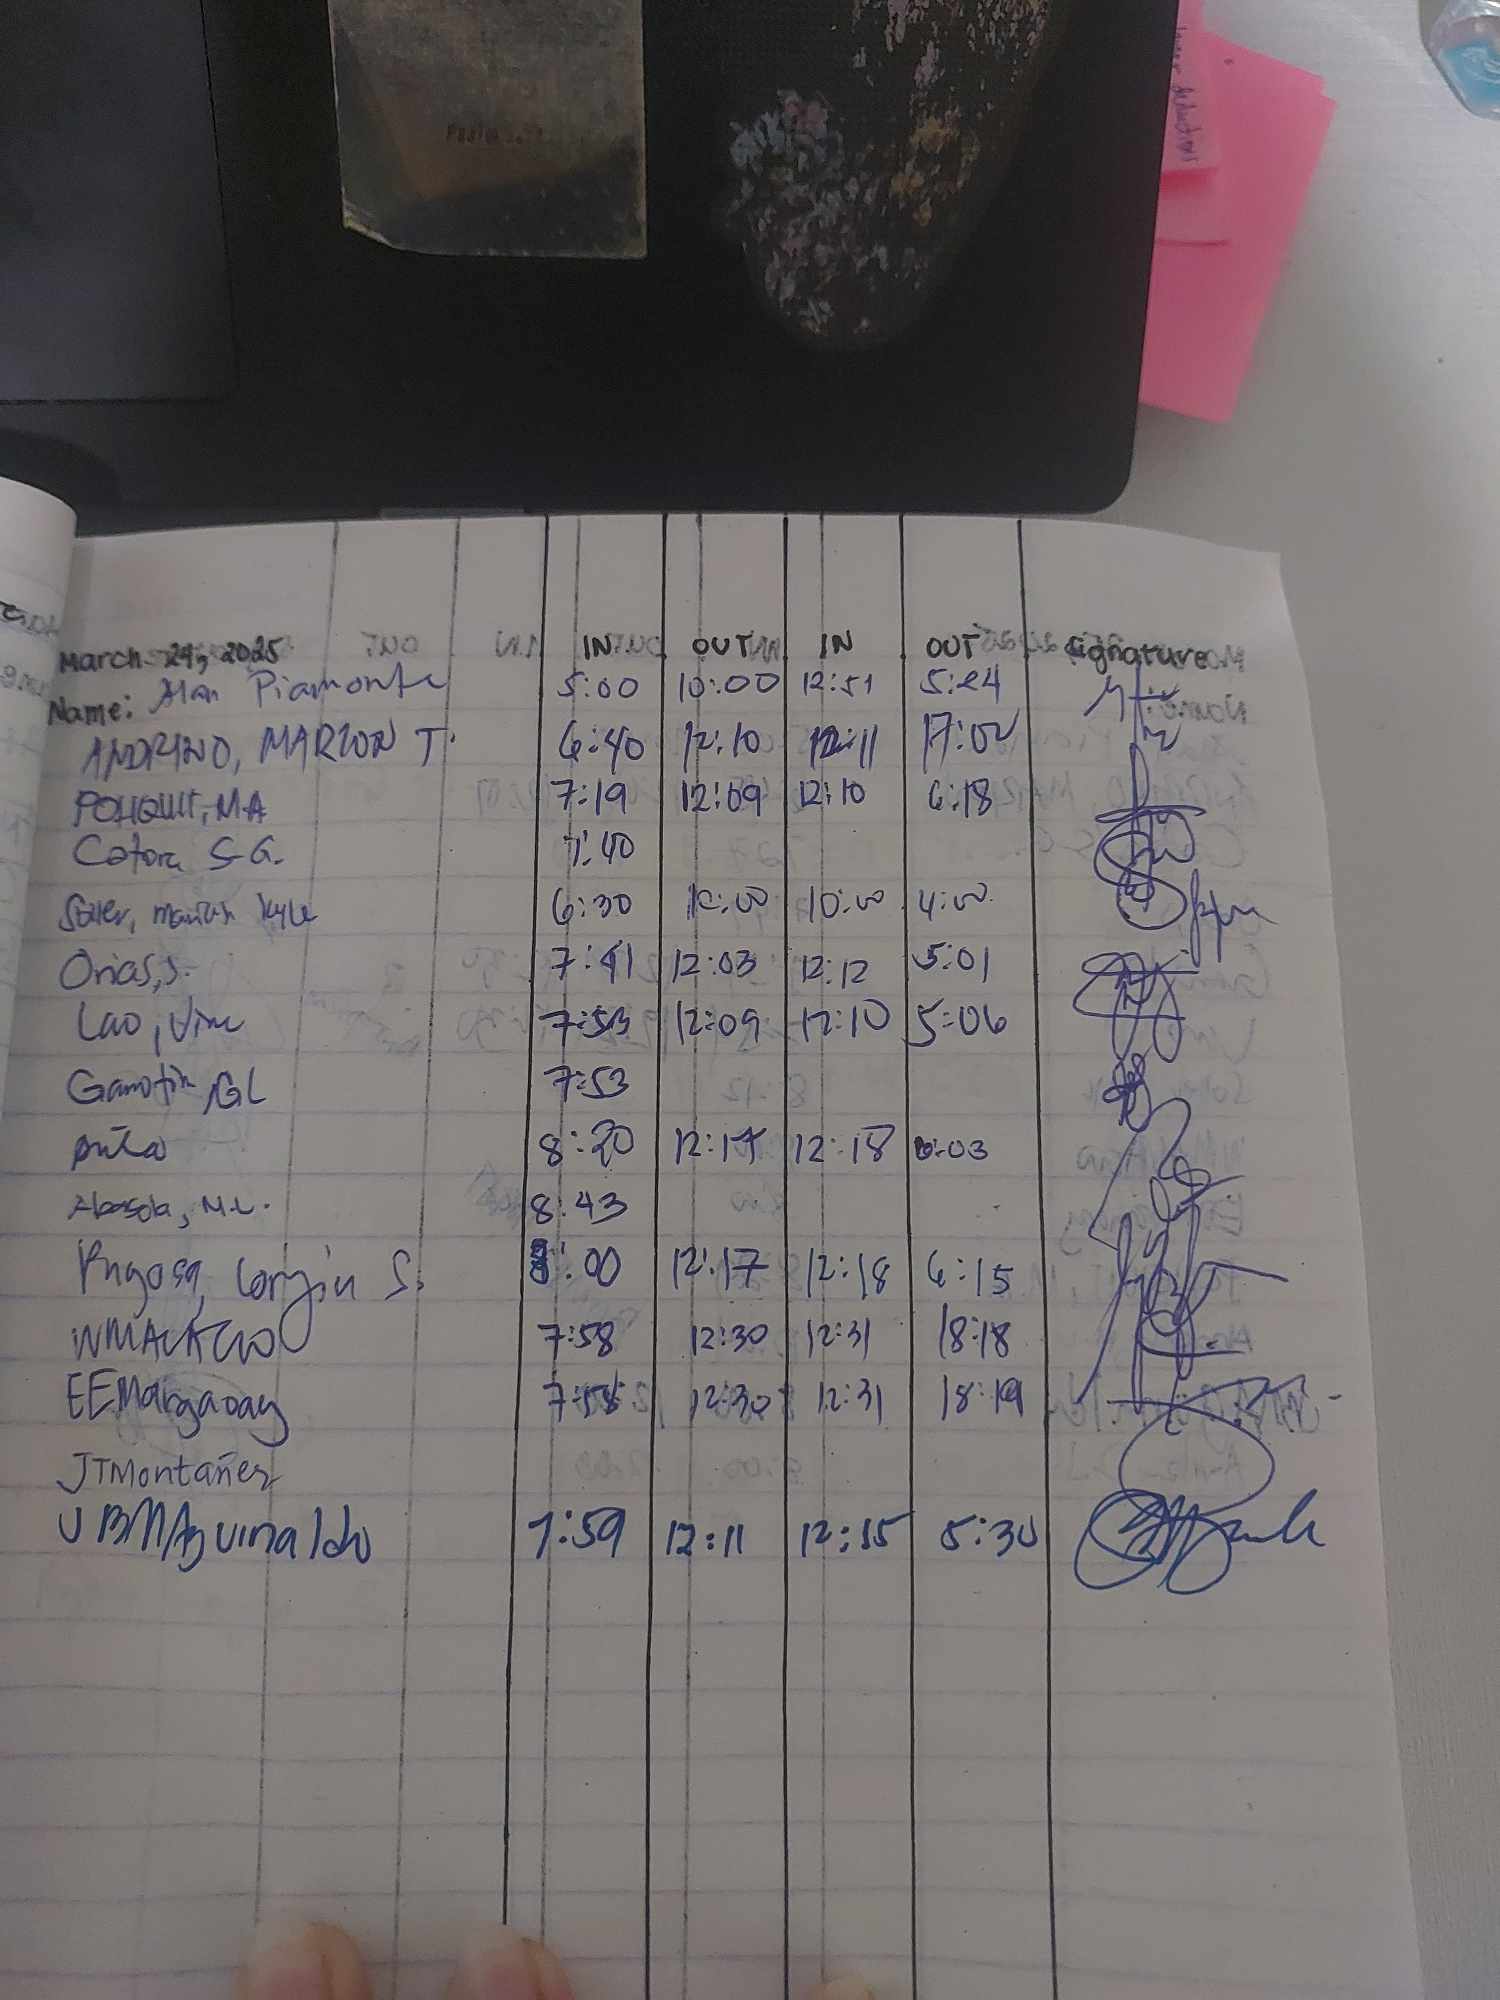 March 24, 2025 IN OUT IN OUT Signature
Name: Alan Piamonte 5:00 10:00 12:51 5:24
ANDRINO, MARION T. 6:40 12:10 12:11 17:02
POHQUIT, MA 7:19 12:09 12:10 6:18
S.G. 7:40
6:30 10:00 10:00 4:00
Orias, S. 7:41 12:03 12:12 5:01
Lao, Vine 7:53 12:09 12:10 5:06
Gamotin, GL 7:53
8:20 12:17 12:18 6:03
Abasola, M.L. 8:43
S. 8:00 12:17 12:18 6:15
7:58 12:30 12:31 18:18
EEMargaoay 7:58 12:30 12:31 18:19
JTMontañez
JBMAguinaldo 7:59 12:11 12:15 5:30